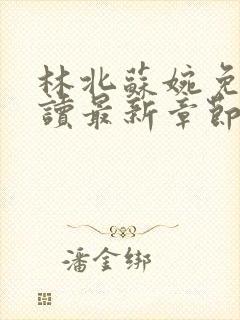 林北蘇婉免
讀最新章節
潘金绑